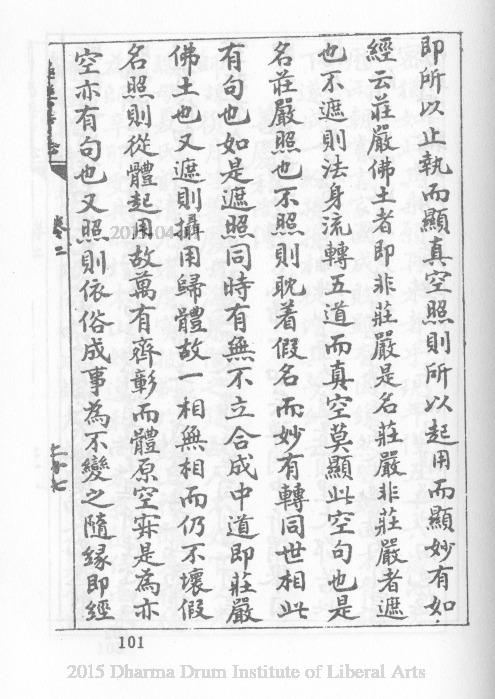 即所以止執而顯真空照則所以起用而顯妙有如
經云莊嚴佛土者即非莊嚴是名莊嚴非莊嚴者遮
也不遮則法身流轉五道而真空莫顯此空句也是
名莊嚴照也不照則耽着假名而妙有轉同世相此
有句也如是遮照同時有無不立合成中道即莊嚴
佛土也又遮則攝用歸體故一相無相而仍不壞假
名照則從體起用故萬有齊彰而體原空寂是為亦
空亦有句也又照則依俗成事為不變之隨緣即經
卷二
101
2015 Dharma Drum Institute of Liberal Arts